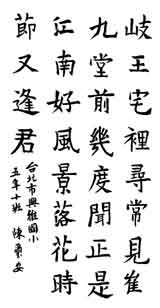 岐王宅裡尋常見崔
九堂前幾度聞正是
江南好風景落花時
節又逢君
台北市興雅國小
五年十班 陳